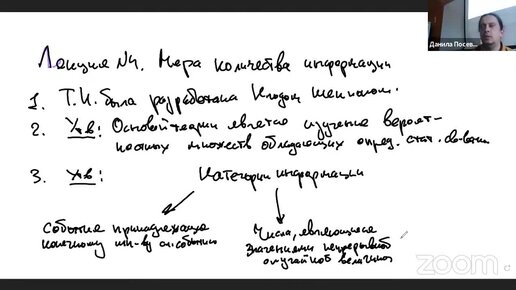 Данила Посев...
Лекция №4. Мера количества информации
1. Т.И. была разработана Клодом Шенноном.
2. Утв: Основой теории является изучение вероят-
ностных множеств обладающих опред. стат. св-вами
3. Утв: Категории информации
События принадлежащие
конечному мн-ву событий
Числа, являющиеся
значениями непрерывной
случайной величины
zoom